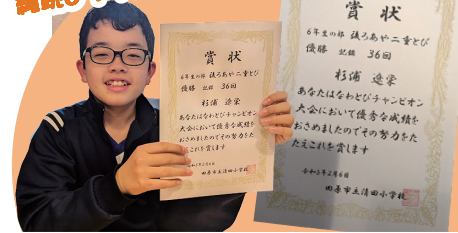 賞状
6年生の部 後ろあや二重とび
優勝 記録 36回
杉浦
あなたはなわとびチャンピオン
大会において優秀な成績を
おさめましたのでその努力をた
たえこれを賞します
田原市立清田小学校
賞状
6年生の部 後ろあや二重とび
優勝 記録 36回
杉浦
あなたはなわとびチャンピオン
大会において優秀な成績を
おさめましたのでその努力をた
たえこれを賞します
2月6日
田原市立清田小学校